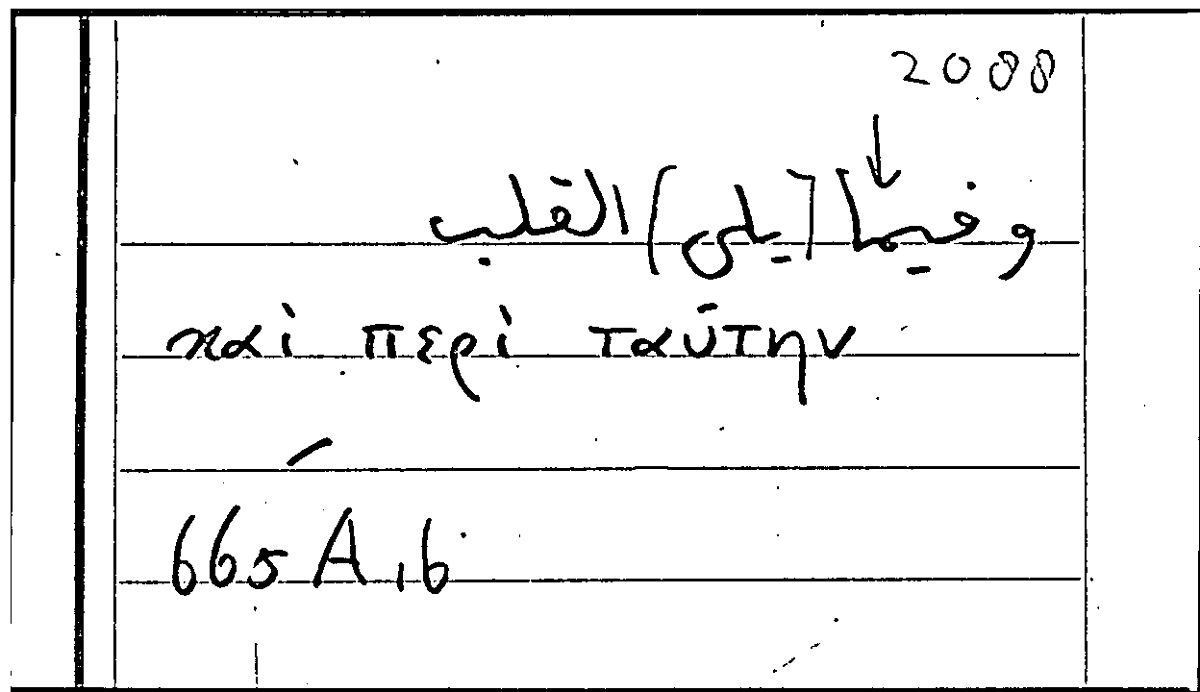 2088
↓
وفيما [يلى] القلب
καὶ περὶ ταύτην
665 A,6